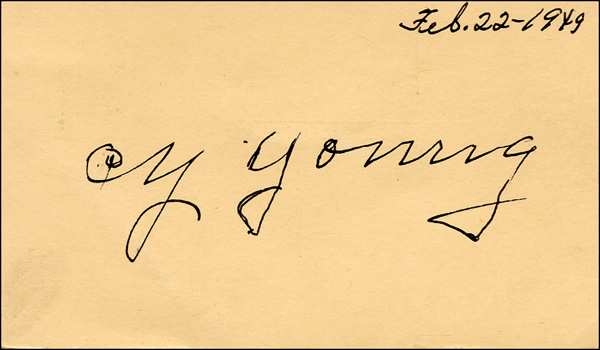 Feb. 22-1949
Cy Young